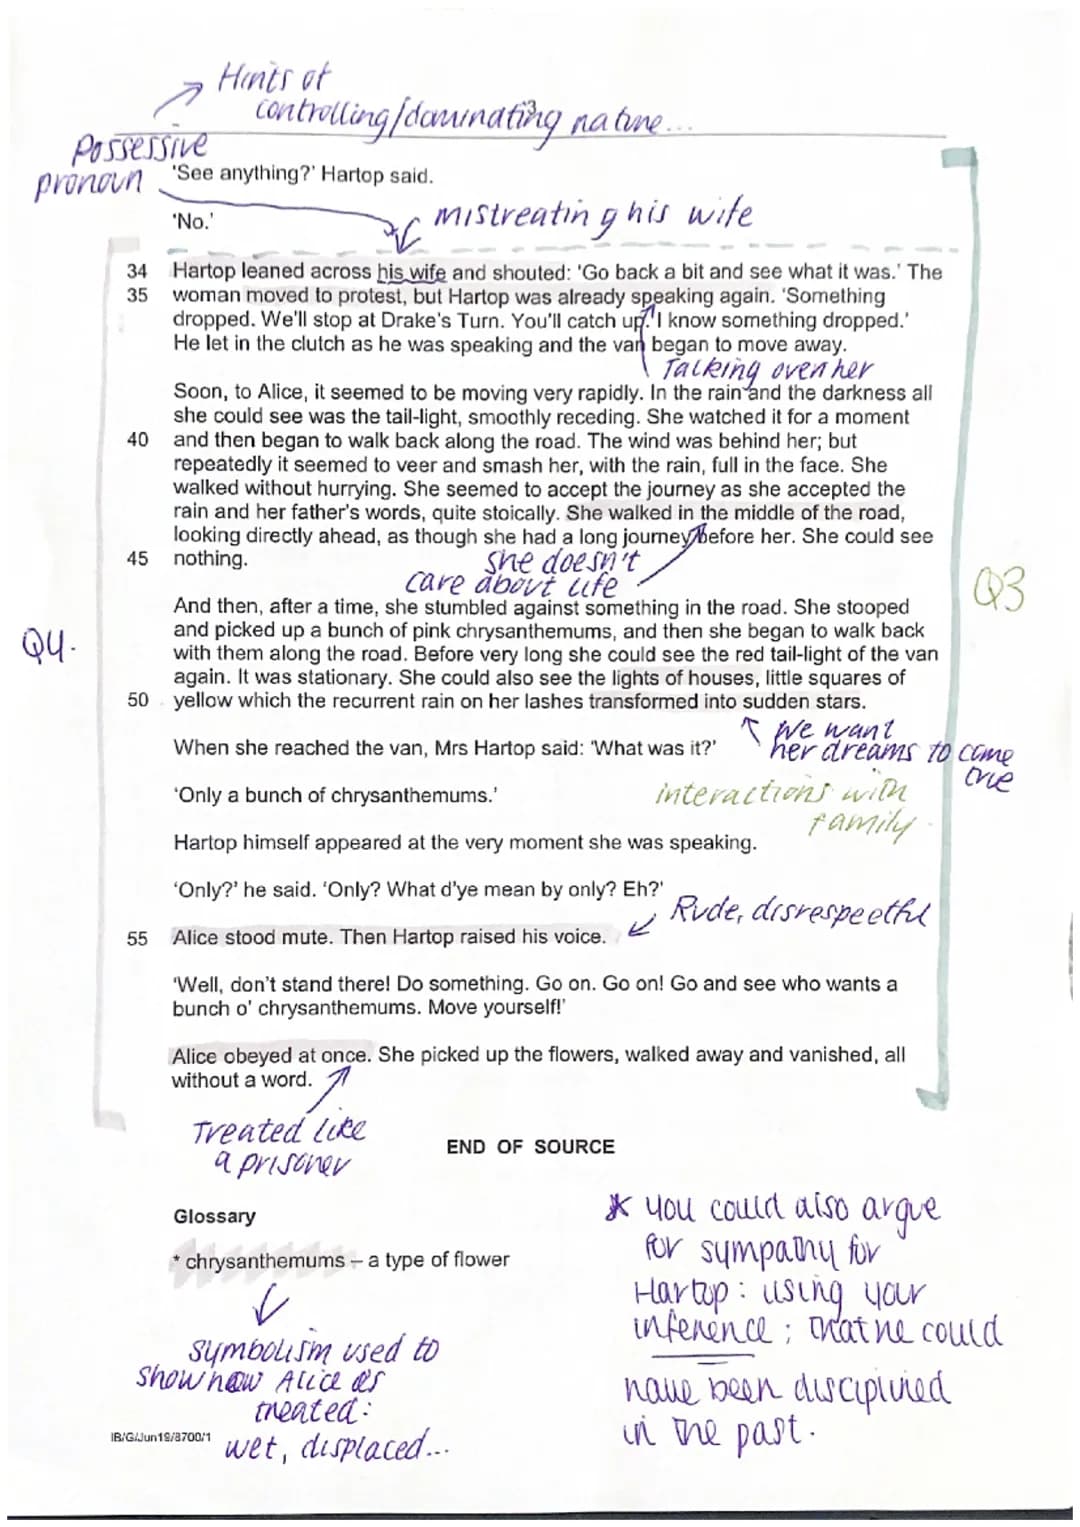 Hints of
controlling/dominating nature...
3
Possessive
pronoun
'See anything?' Hartop said.
'No.'
mistreating his wife
34 Hartop leaned across his wife and shouted: 'Go back a bit and see what it was.' The
35 woman moved to protest, but Hartop was already speaking again. 'Something
dropped. We'll stop at Drake's Turn. You'll catch up. I know something dropped.'
He let in the clutch as he was speaking and the van began to move away.
Talking over her
Soon, to Alice, it seemed to be moving very rapidly. In the rain and the darkness all
she could see was the tail-light, smoothly receding. She watched it for a moment
40 and then began to walk back along the road. The wind was behind her; but
repeatedly it seemed to veer and smash her, with the rain, full in the face. She
walked without hurrying. She seemed to accept the journey as she accepted the
rain and her father's words, quite stoically. She walked in the middle of the road,
looking directly ahead, as though she had a long journey before her. She could see
45 nothing.
she doesn't
care about life
Q3
And then, after a time, she stumbled against something in the road. She stooped
and picked up a bunch of pink chrysanthemums, and then she began to walk back
Q4.
with them along the road. Before very long she could see the red tail-light of the van
again. It was stationary. She could also see the lights of houses, little squares of
50 yellow which the recurrent rain on her lashes transformed into sudden stars.
We want
her dreams to come
true
When she reached the van, Mrs Hartop said: 'What was it?'
'Only a bunch of chrysanthemums.'
interactions with
family.
Hartop himself appeared at the very moment she was speaking.
'Only?' he said. 'Only? What d'ye mean by only? Eh?'
Rude, disrespectful
55 Alice stood mute. Then Hartop raised his voice.
'Well, don't stand there! Do something. Go on. Go on! Go and see who wants a
bunch o' chrysanthemums. Move yourself!'
Alice obeyed at once. She picked up the flowers, walked away and vanished, all
without a word.
Treated like
a prisoner
END OF SOURCE
Glossary
* chrysanthemums – a type of flower
symbolism used to
show how Alice is
treated:
wet, displaced...
* you could also argue
for sympathy for
Hartop: using your
inference; that he could
have been disciplined
in the past.
IB/G/Jun19/8700/1